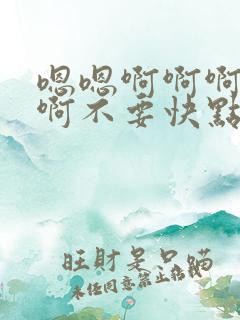 嗯嗯啊啊啊
啊不要快點
旺財是只瞄
未任同意禁止转载